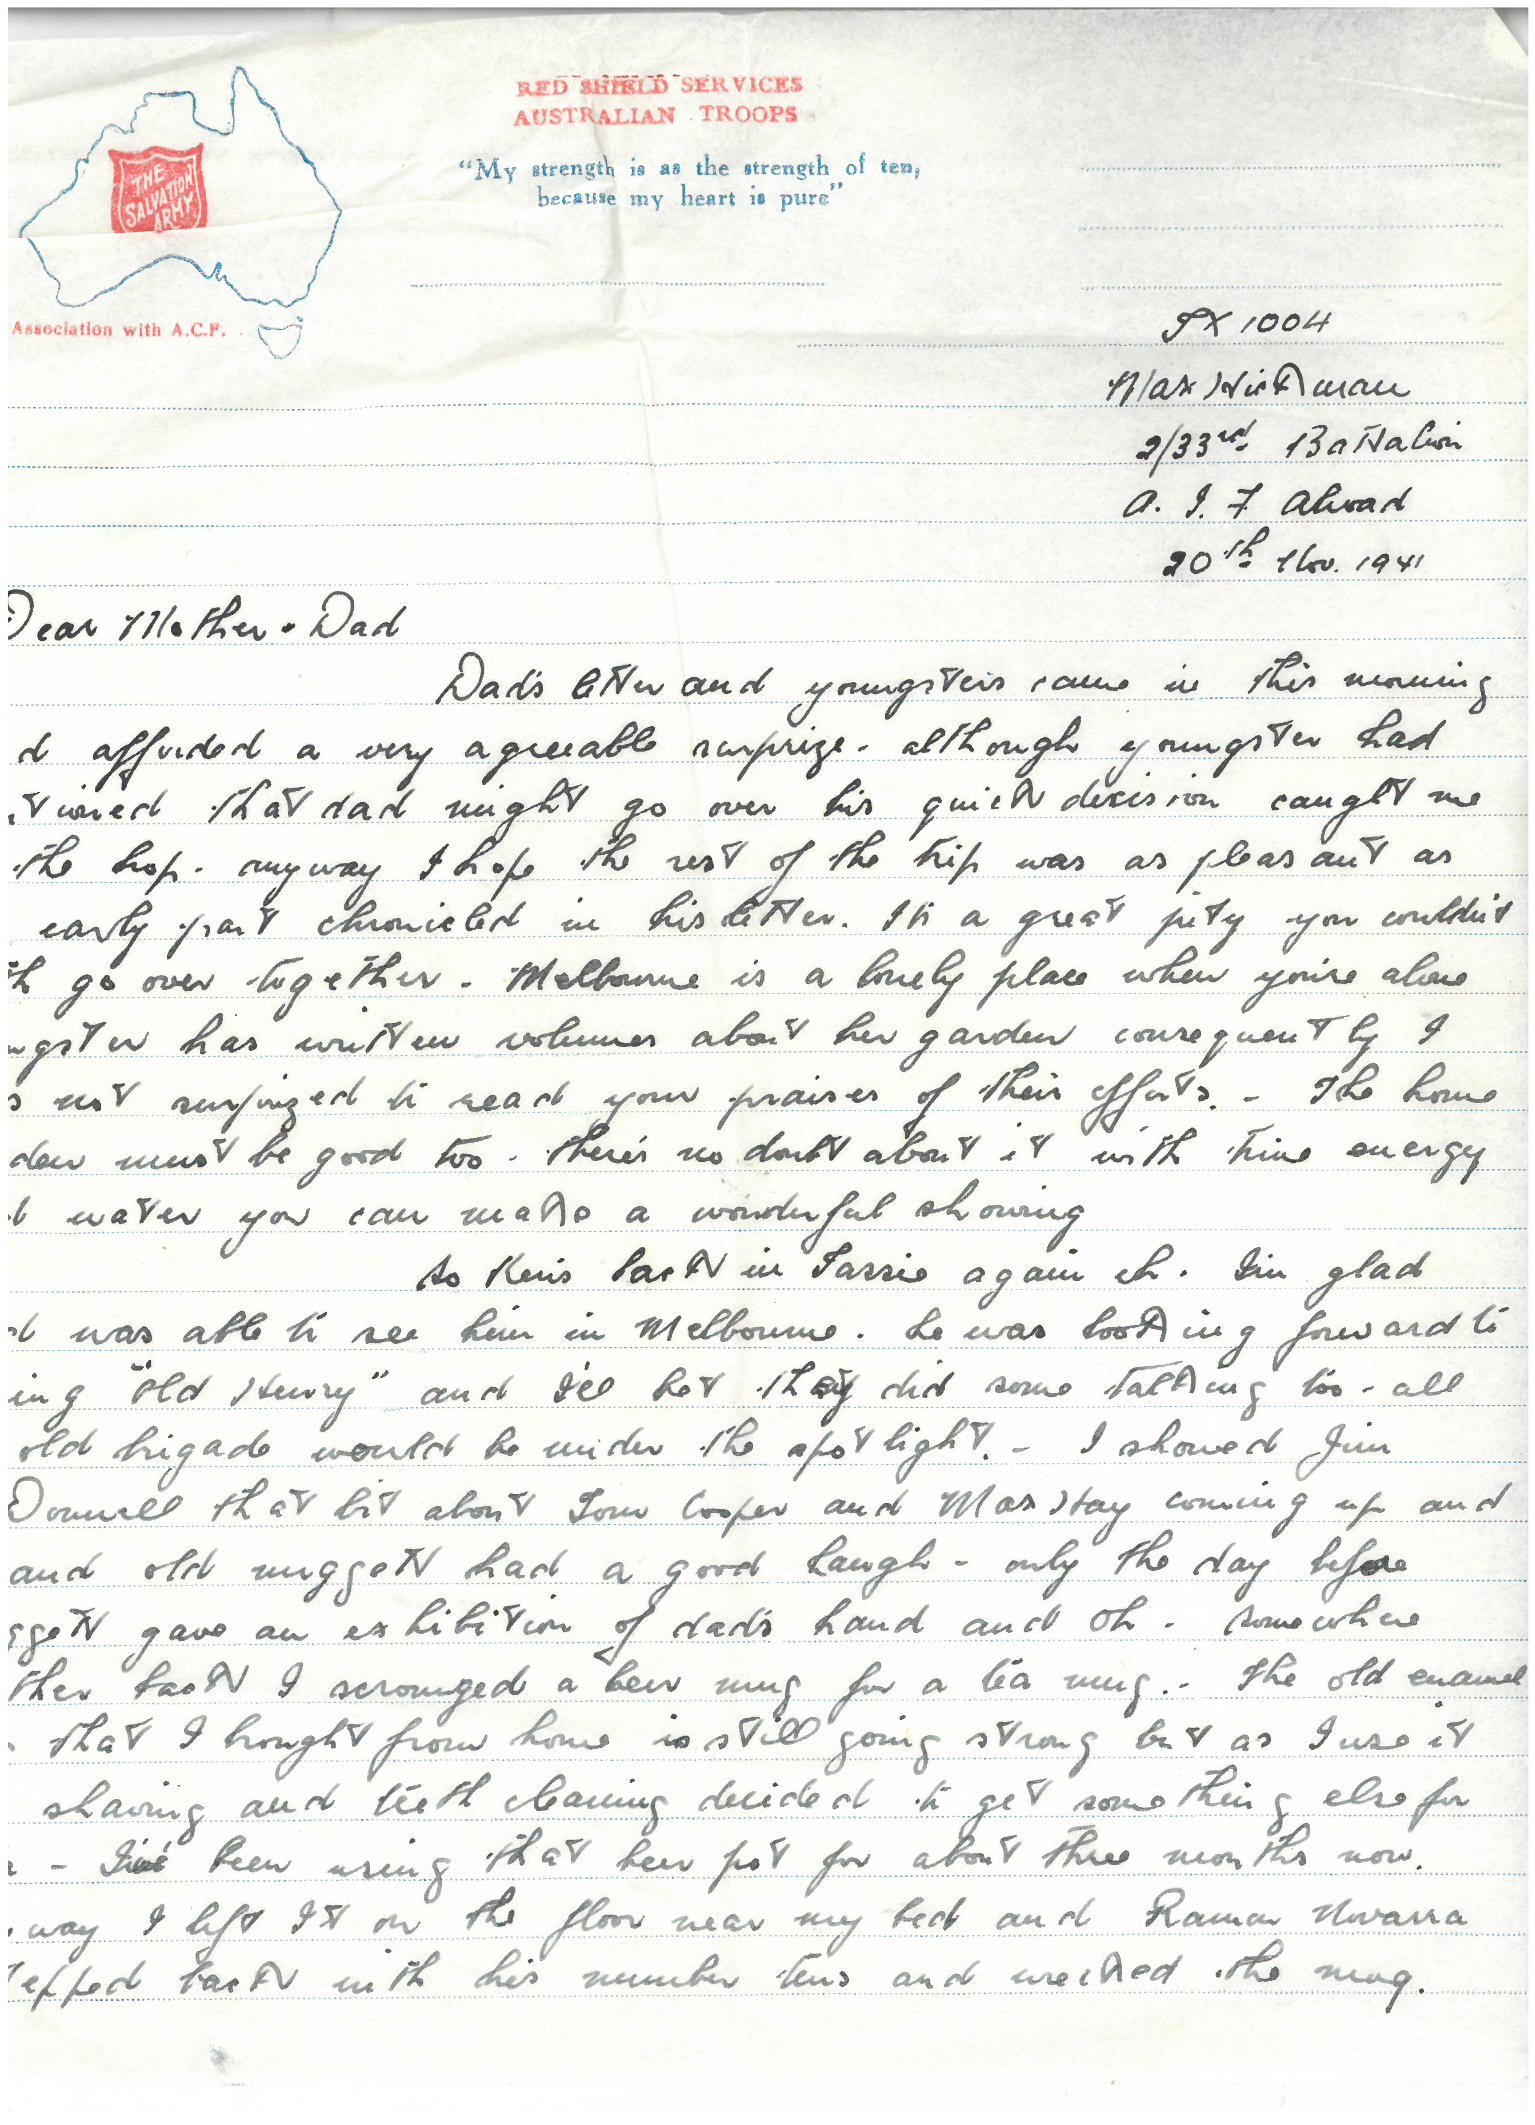 RED SHIELD SERVICES
AUSTRALIAN TROOPS
"My strength is as the strength of ten,
because my heart is pure"
THE
SALVATION
ARMY
Association with A.C.F.
TX 1004
Max Hickman
2/33rd Battalion
A. I. F Abroad
20th Nov. 1941
Dear Mother & Dad
Dad's letter and youngsters came in this morning
d afforded a very agreeable surprize. although youngster had
tioned that dad might go over his quick decision caught me
the hop. anyway I hope the rest of the trip was as pleasant as
early part chronicled in his letter. Its a great pity you couldn't
th go over together. Melbourne is a lonely place when you're alone
ngster has written volumes about her garden consequently I
s not surprized to read your praises of their efforts. - The home
den must be good too. there's no doubt about it with time energy
d water you can make a wonderful showing
So Ken's back in Tassie again eh. I'm glad
d was able to see him in Melbourne. he was looking forward to
ing "Old Henry" and I'll bet they did some talking too - all
old brigade would be under the spotlight. - I showed Jim
Donnell that bit about Tom Cooper and Max Hay coming up and
and old nuggett had a good laugh - only the day before
ggett gave an exhibition of dad's hand and Oh. Somewhere
ther back I scrounged a beer mug for a tea mug. - The old enamel
that I brought from home is still going strong but as I use it
shaving and teeth cleaning decided to get something else for
- I've been using that beer pot for about three months now.
way I left It on the floor near my bed and Ramon Novarra
tepped back with his number tens and wrecked the mug.